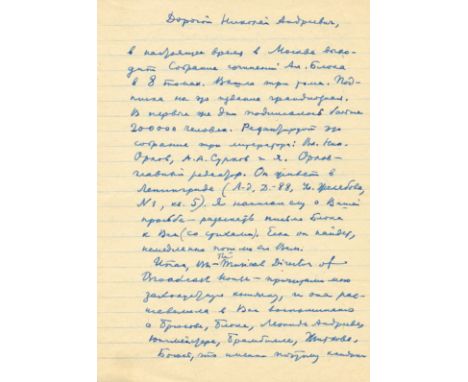 Дорогой Николай Андреевич,
в настоящее время в Москве выхо-
дит Собрание сочинений Ал. Блока
в 8 томах. Вышло три тома. Под-
писка на это издание грандиозная.
В первые же дни подписалось более
200000 человек. Редактируют это
собрание три литератора: Вл. Ник.
Орлов, А. А. Сурков и я. Орлов –
главный редактор. Он живет в
Ленинграде (Л-д, Д-88, ул. Желябова,
№1, кв. 5). Я написал ему о Вашей
просьбе – разыскать письма Блока
к Вам (со стихами). Если он найдет,
немедленно пошлю их Вам.
Итак, Вы – The Musical Director of
Broadcast House – прочитали мою
книжку, и она рас-
шевелила в Вас воспоминания
о Брюсове, Блоке, Леониде Андрееве,
Юшкевиче,
Боюсь, что